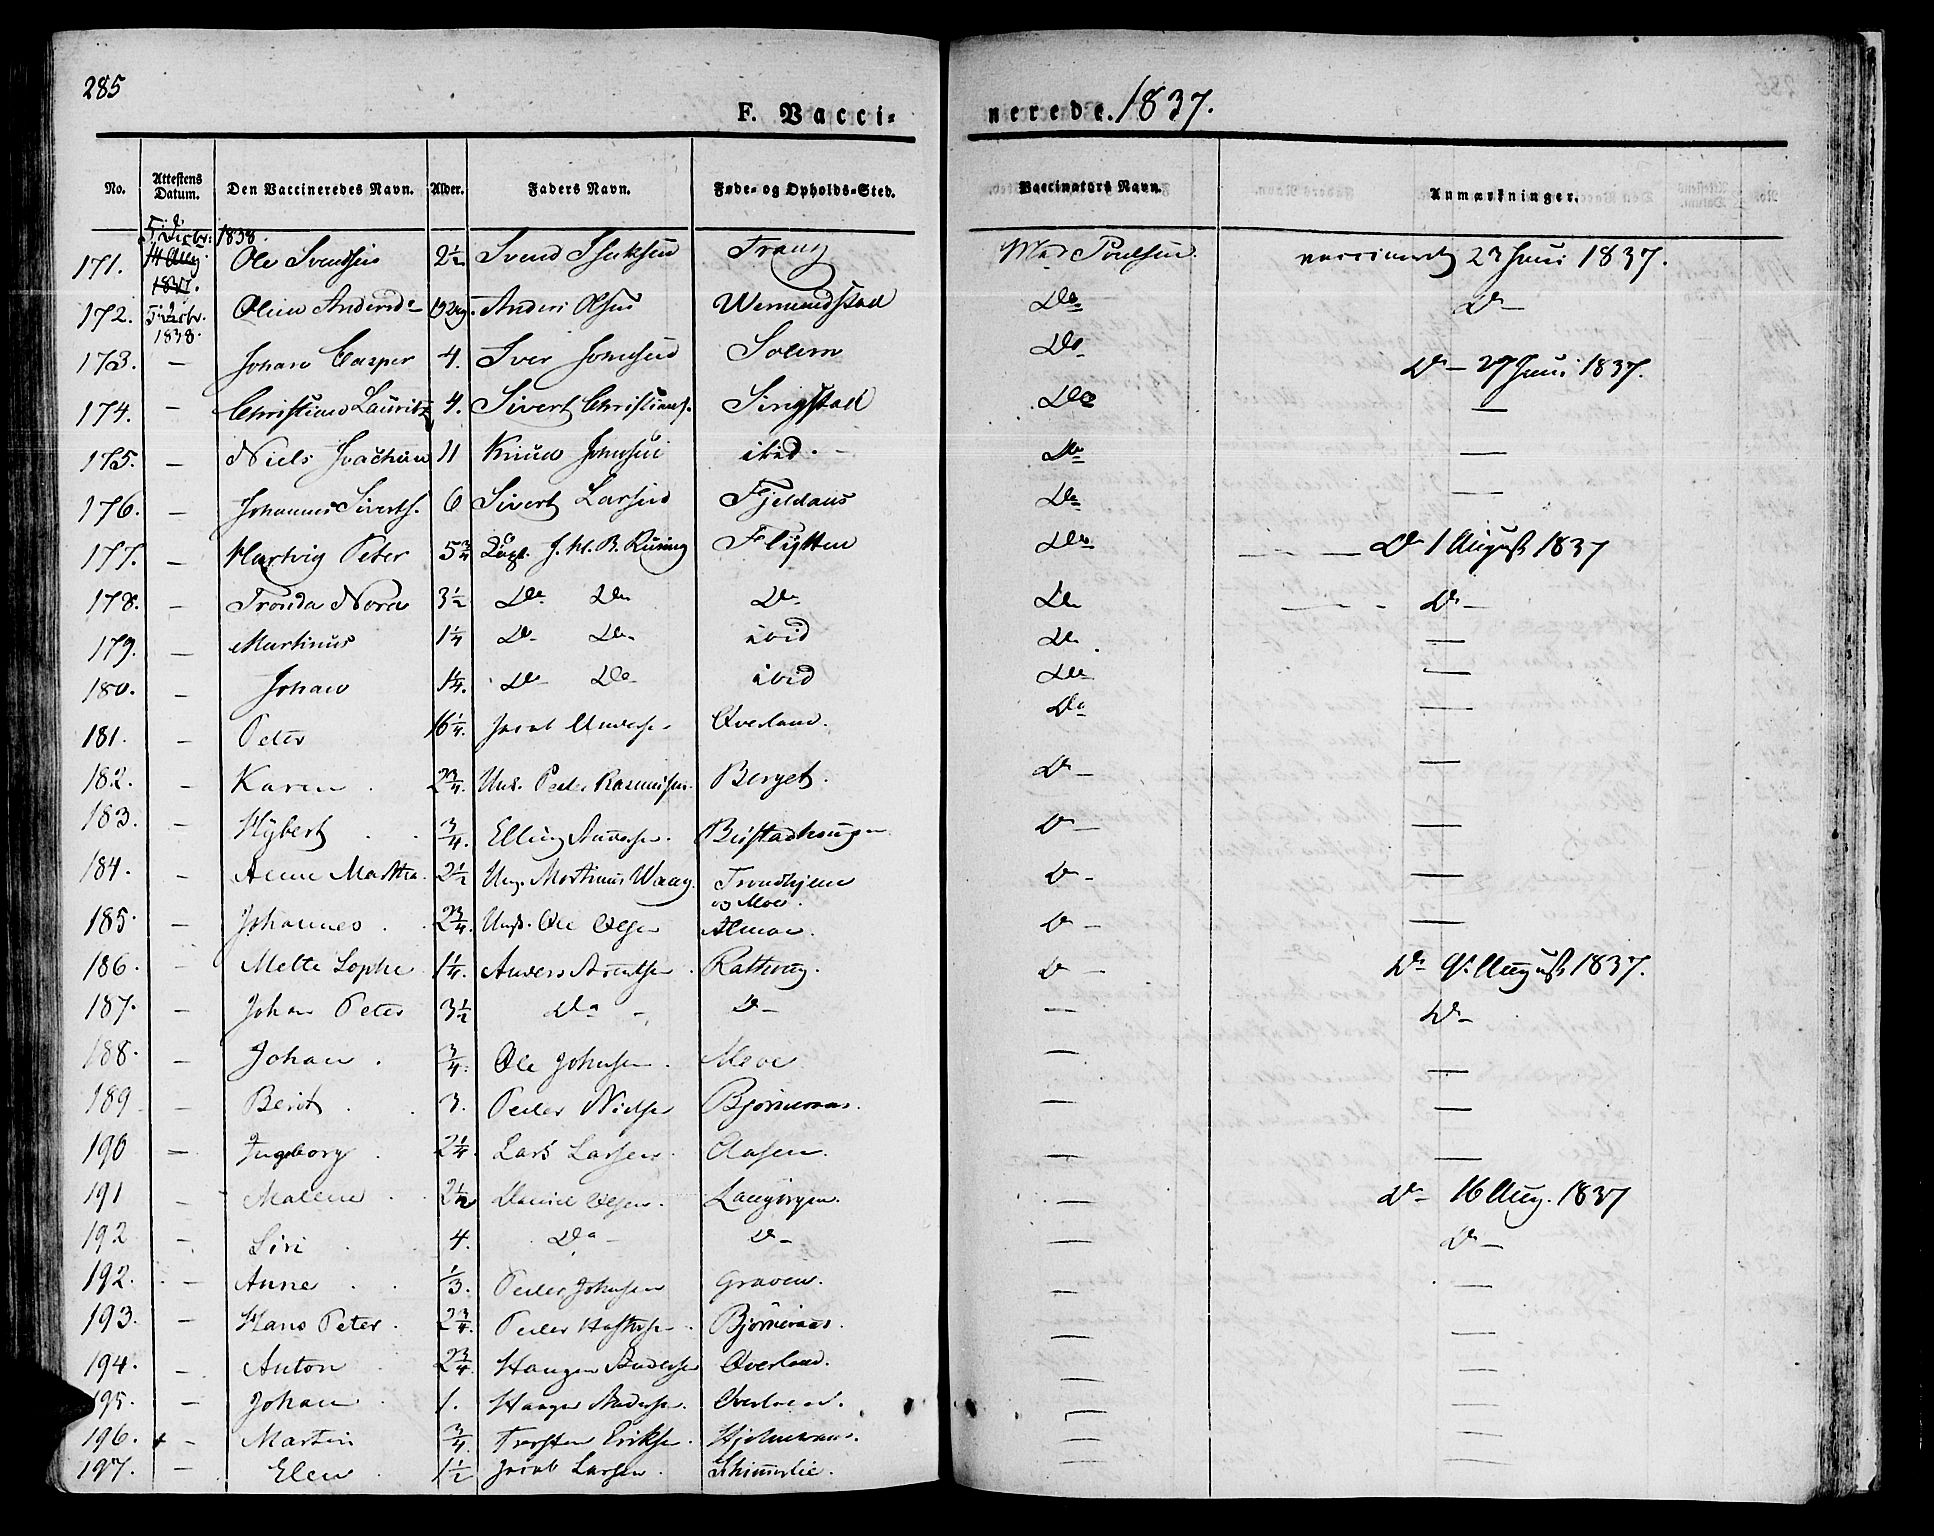 285
F. Vacci-
nerede. 1837.
No. Attestens Datum. Den Vaccineredes Navn. Alder. Faders Navn. Føde- og Opholds-Sted. Vaccinators Navn. Anmærkninger.
5 Decbr: 1838.
171. 14 Aug. 1837. Ole Svendsen 2½ Svend Trang Mad Poulsen vaccineret 23 Juni 1837.
172. 5 Decbr. 1838. Oline Andersd 19 Anders Olsen Wermundstad Do Do —
173. — Johan Casper 4. Iver Johnsen Solem Do Do — 27 Juni 1837.
174. — Christian Lauritz 4. Sivert Christians. Singstad Do —
175. — Niels Joachim 11 Knud Johnsen ibid. — Do —
176. — Johannes Siverts. 6 Sivert Larsen Fjeldaas Do —
177. — Hartvig Peter 5¾ J. H. B. Flytten Do — — — Do 1 August 1837
178. — Tronda Nora 3½ Do Do Do Do — — - Do —
179. — Martinus 1¼ Do Do ibid Do —
180. — Johan 1¼. Do Do ibid Do —
181. — Peter 16¼. Jacob Anders. Overland. Do —
182. — Karen . 2¾. Peder Rasmussen. Berget. Do — —
183. — Hybert . . ¾. Elling Andersen. Do — —
184. — Anne Martha. 2½ Ung. Martinus Waag. Trondhjem og Moe. Do - —
185. — Johannes . . 2¾. Ole Olsen Almaas. Do — —
186. — Mette Sophie 1¼. Anders Arentsen . Rathaug. Do — Do 9. August 1837.
187. — Johan Peter 3½ Do - Do — — Do —
188. — Johan . ¾. Ole Johnsen . Moe — —
189 — Berit . . 3. Peder Nielsen Bjørneraas. — —
190 — Ingeborg . 2¼. Lars Larsen . Aasen. — —
191 — Malene . . 2½ Daniel Olsen. Langørgen. — Do — 16 Aug. 1837
192 — Siri . . 4. Do - Do — — Do —
192. — Anne . . ⅓. Peder Johnsen Graven. — —
193. — Hans Peter . 2¾. Peder . Bjørneraas. — —
194. — Anton . 2¾. Haagen Andersen Overland. — —
195. — Johan . 1. Haagen Andersen. Overland. — —
196. + — Martin ¾. Torsten Eriksen. — —
197. — Elen . 1½ Jacob Larsen . — —